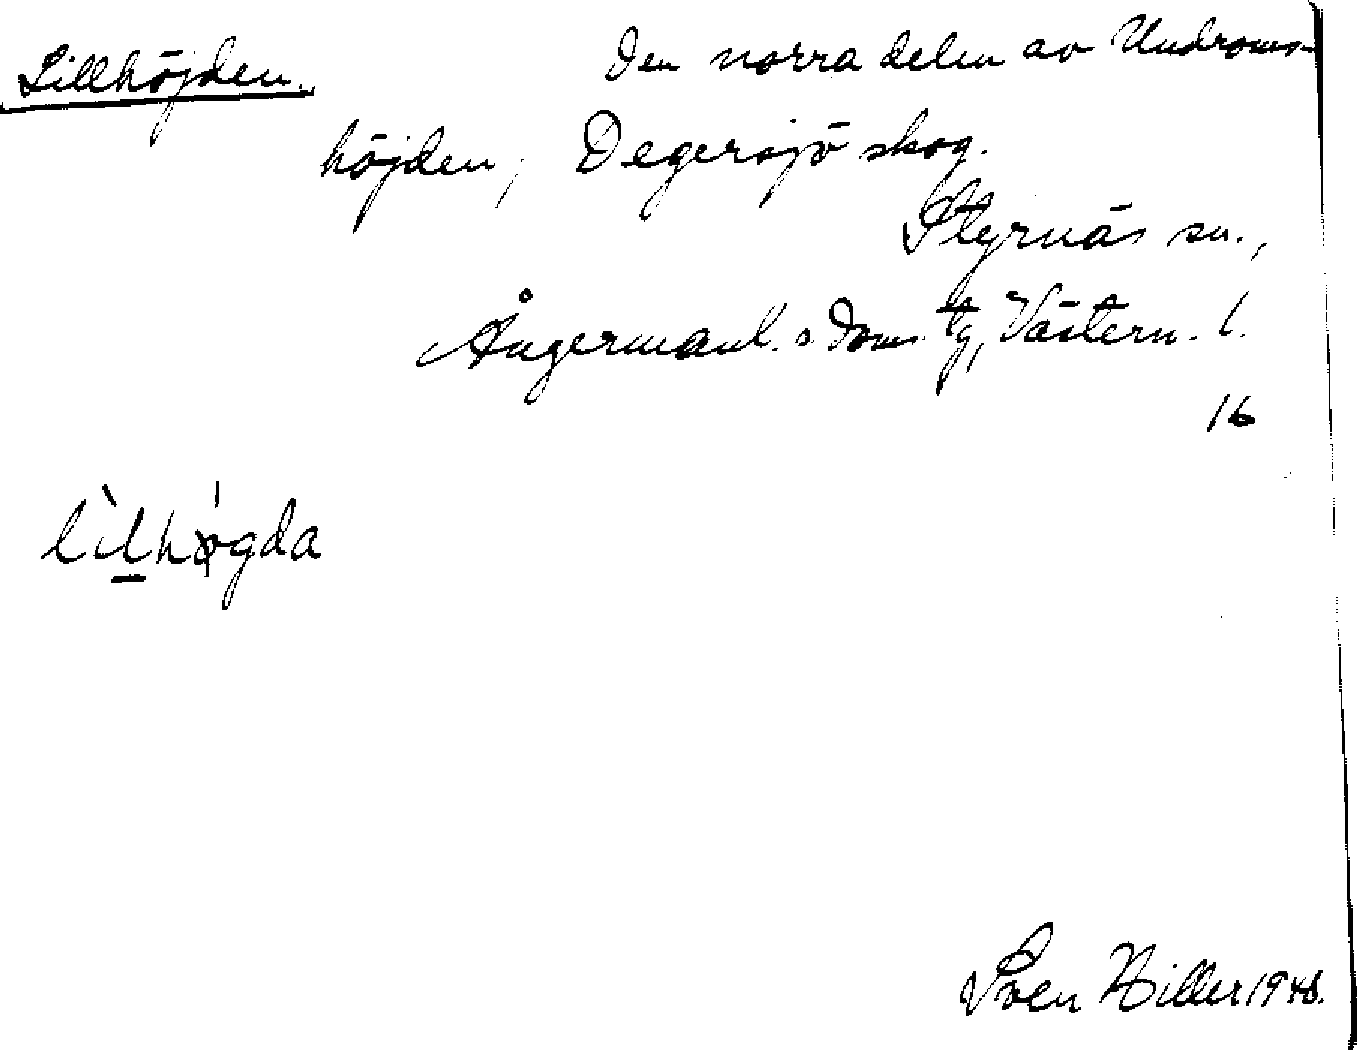 Lillhöjden. Den norra delen av Undroms-
höjden, Degersjö skog.
Styrnäs sn.,
Ångermanl. s doms. tg, Västern. l.
16
lìlhøgda
Sven Hiller 1948.